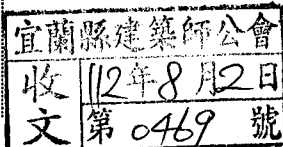 宜蘭縣建築師公會
收文
112年8月2日
第0469號